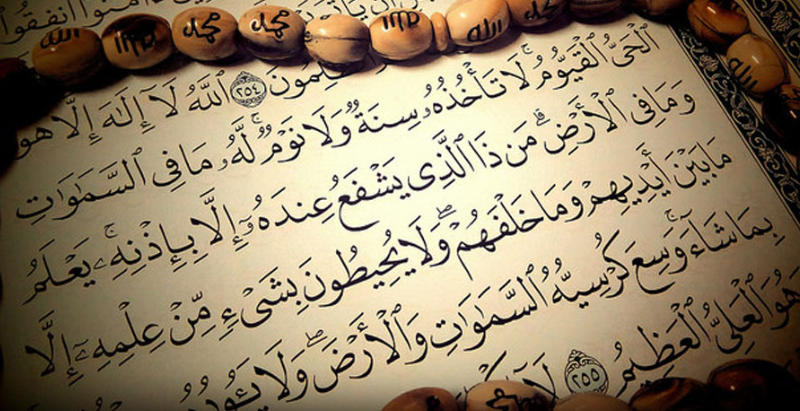 ءَامَنُوٓا۟ أَنفِقُوا۟
أَن يَأْتِىَ
الله محمد محمد الله الله محمد
الله
لِمُونَ ٢٥٤ ٱللَّهُ لَآ إِلَٰهَ إِلَّا هُوَ
ٱلْحَىُّ ٱلْقَيُّومُ ۚ لَا تَأْخُذُهُۥ سِنَةٌ وَلَا نَوْمٌ ۚ لَّهُۥ مَا فِى ٱلسَّمَٰوَٰتِ
وَمَا فِى ٱلْأَرْضِ ۗ مَن ذَا ٱلَّذِى يَشْفَعُ عِندَهُۥٓ إِلَّا بِإِذْنِهِۦ ۚ يَعْلَمُ
مَا بَيْنَ أَيْدِيهِمْ وَمَا خَلْفَهُمْ ۖ وَلَا يُحِيطُونَ بِشَىْءٍ مِّنْ عِلْمِهِۦٓ إِلَّا
بِمَا شَآءَ ۚ وَسِعَ كُرْسِيُّهُ ٱلسَّمَٰوَٰتِ وَٱلْأَرْضَ ۖ وَلَا يَـُٔودُ
وَهُوَ ٱلْعَلِىُّ ٱلْعَظِيمُ ٢٥٥ لَآ